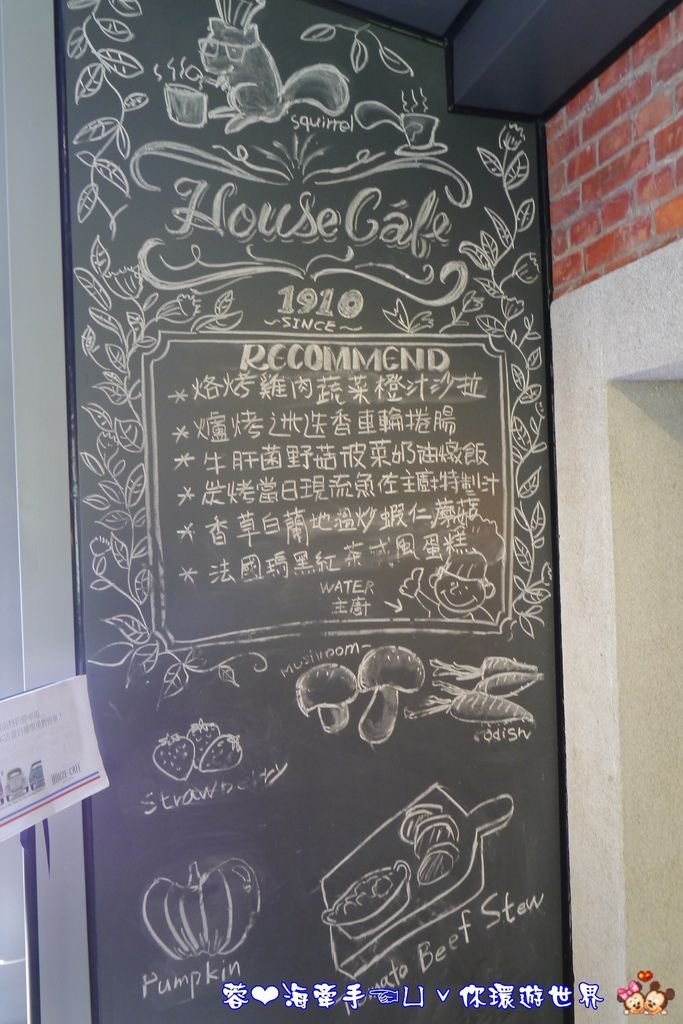 squirrel
House Cáfe
1910
~SINCE~
RECOMMEND
* 烙烤雞肉蔬菜橙汁沙拉
* 爐烤迷迭香車輪捲腸
* 牛肝菌野菇菠菜奶油燉飯
* 炭烤當日現流魚佐主廚特製汁
* 香草白蘭地溫炒蝦仁蘑菇
* 法國瑪黑紅茶戚風蛋糕
WATER
主廚
Mushroom
Strawberry
Pumpkin
Beef Stew
HOUSE CAFE
蓉❤海牽手☜凵ˇ你環遊世界